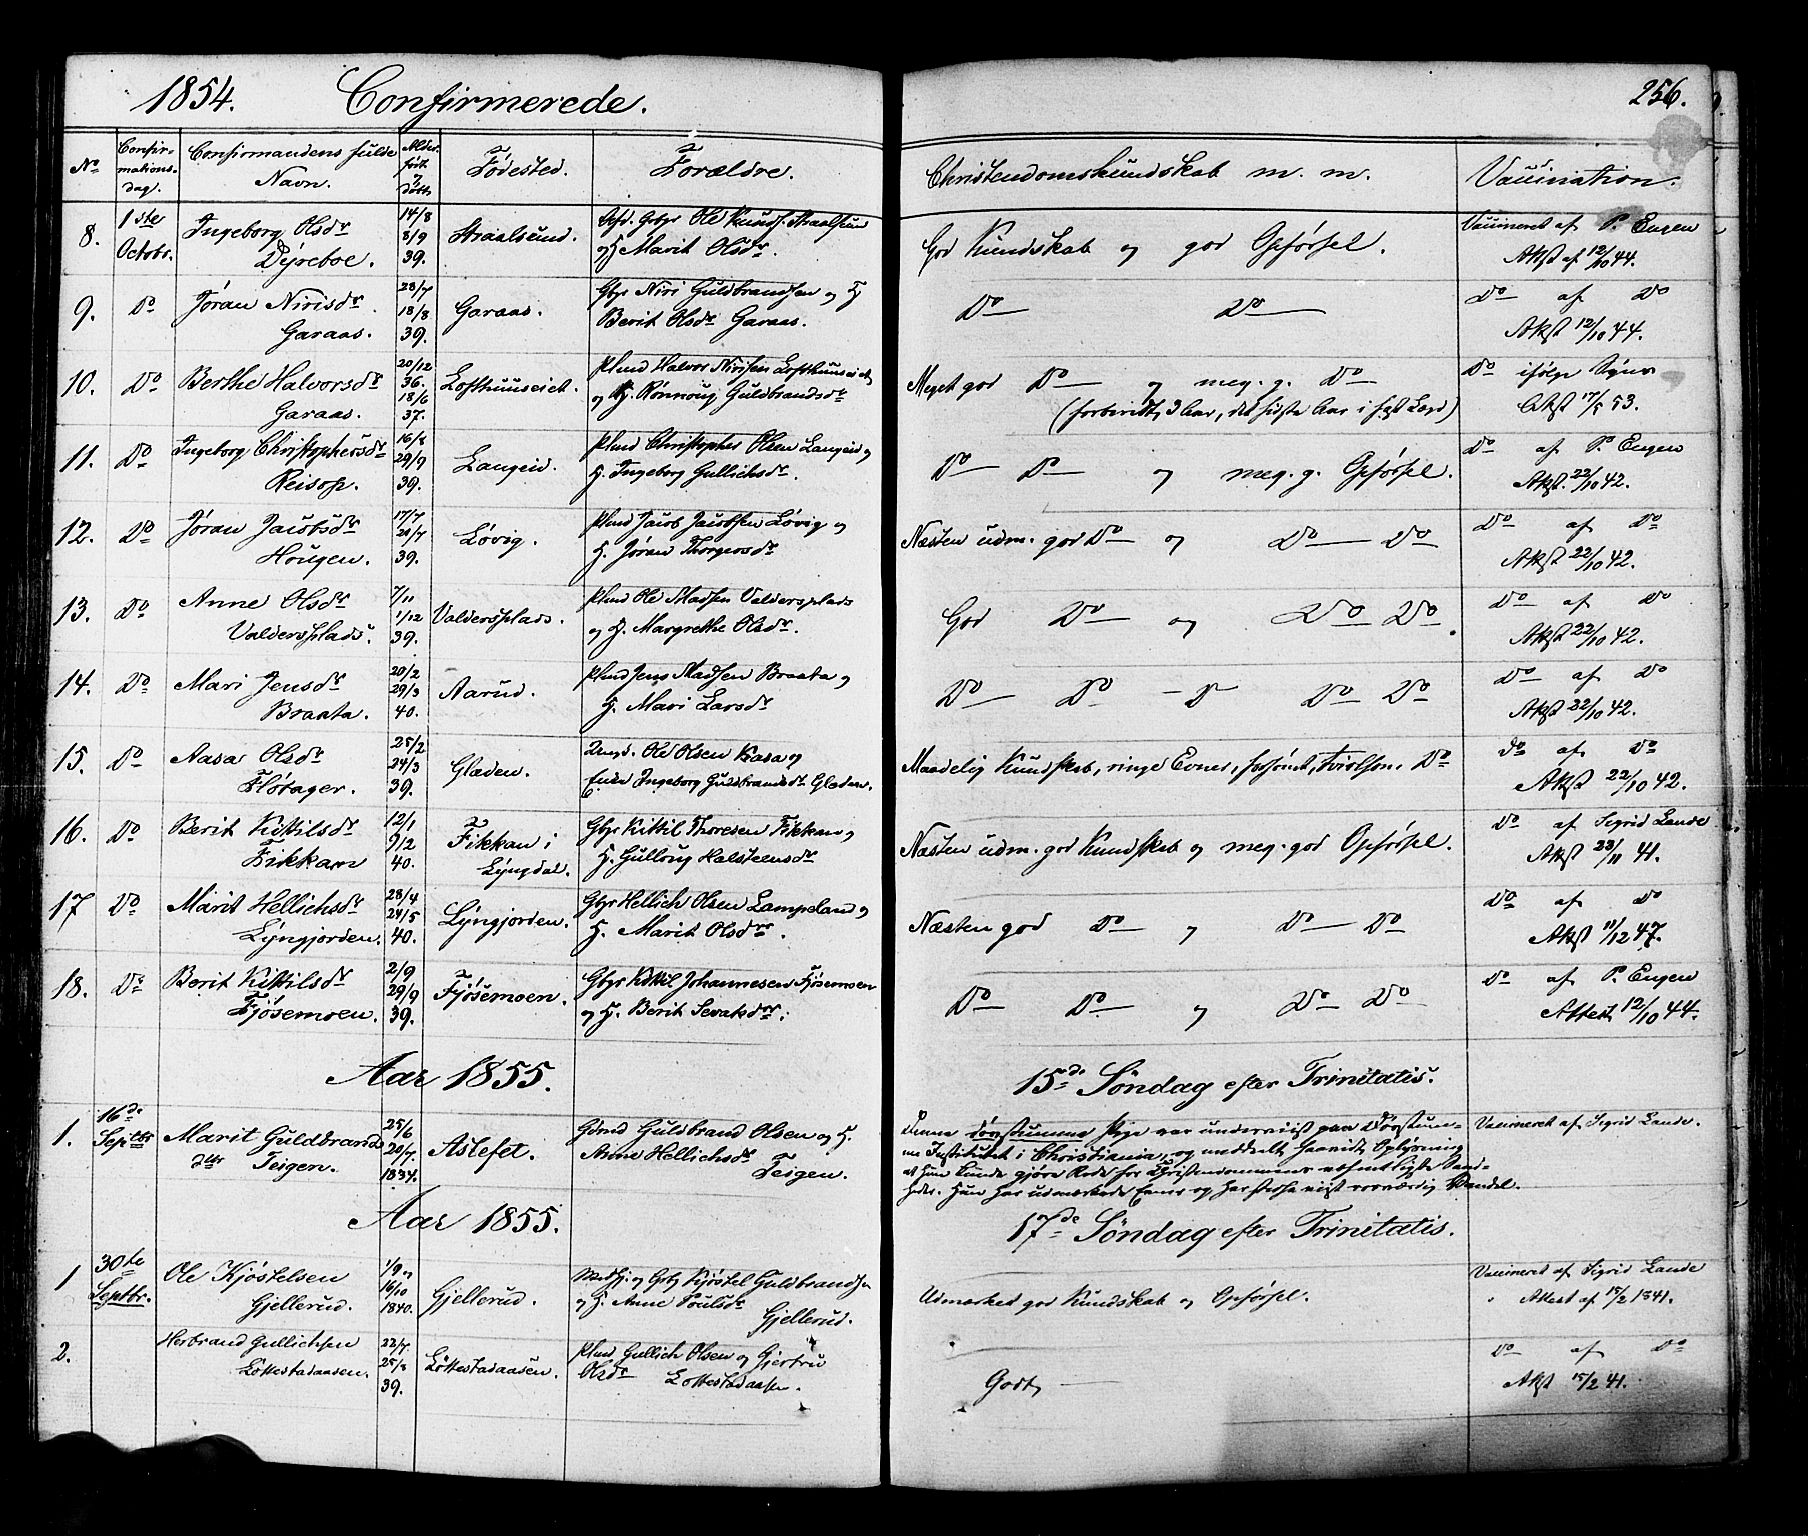 1854. Confirmerede.
256.
No
Confir-
mations-
dag.
Confirmandens fulde
Navn.
Alder
født
døbt
Fødested.
Forældre.
Christendomskundskab m. m.
Vaccination.
8. 1ste Octobr. Ingeborg Olsdr Dyreboe. 14/8 8/9 39. Straalsund. Gbr Ole Knuds. Straalsun og H. Marit Olsdr. God Kundskab og god Opførsel. Vaccineret af P. Eugen Attst af 12/10 44.
9. Do Jøran Nirisdr Garaas. 28/7 18/8 39. Garaas. Gbr Niri Guldbrandsen og H Berit Olsdr Garaas. Do Do Do af Do Attst 12/10 44.
10. Do Berthe Halvorsdr Garaas. 20/12 36. 18/6 37. Lofthuuseiet. Plmd Halvor Nirisen Lofthuuseiet og H. Rønnoug Guldbrandsdr Meget god Do og meg. g. Do (forberedt 3 Aar, det sidste Aar i fast Læse) Do ifølge Attst 17/5 53.
11. Do Ingeborg Christophersdr Reisop. 16/8 29/9 39. Langeid. Plmd Christopher Olsen Langeid og H. Ingeborg Gullichsdr. Do Do og meg. g. Opførsel. Do af P. Eugen Attst. 22/10 42.
12. Do Jøran Jacobsdr Hougen. 17/7 28/7 39. Løvig. Plmd Jacob Jacobsen Løvig og H. Jøran Thorgersdr Næsten udm. god Do og Do Do Do af Do Attst 22/10 42.
13. Do Anne Olsdr Valdersplads. 7/11 1/12 39. Valdersplads. Plmd Ole Madsen Valdersplads og H. Margrethe Olsdr. God Do og Do Do Do af Do Attst 22/10 42.
14. Do Mari Jensdr Braata. 20/2 29/3 40. Aarud. Plmd Jens Madsen Braata og H. Mari Larsdr Do Do - D Do Do Do af Do Attst 22/10 42.
15. Do Aasa Olsdr Fløtager. 25/2 24/3 39. Glæden. Ungk. Ole Olsen Kasa og Enke Ingeborg Guldbrandsdr Glæden. Maadelig Kundskab, ringe Evner, Do Do af Do Attst 22/10 42.
16. Do Berit Kittilsdr Fikkan 12/1 9/2 40. Fikkan i Lyngdal. Gbr Kittil Thoresen Fikkan og H. Gulloug Halsteensdr Næsten udm. god Kundskab og meg. god Opførsel. Do af Sigrid Lande Attst 23/11 41.
17 Do Marit Hellichsdr Lyngjorden. 28/4 24/5 40. Lyngjorden. Gbr Hellich Olsen Lampeland og H. Marit Olsdr. Næsten god Do og Do Do Do af Do Attst 11/12 47.
18. Do Berit Kittilsdr Fjøsemoen. 2/9 29/9 39. Fjøsemoen. Gbr Kittil Johannesen Fjøsemoen og H. Berit Sevatsdr. Do Do og Do Do Do af P. Eugen Attest 12/10 44.
Aar 1855. 15de Søndag efter Trinitatis.
1. 16de Septbr Marit Guldbrandsdtr Teigen. 25/6 20/7 1834. Aslefet. Gdmd Guldbrand Olsen og H. Anne Hellichsdr Teigen.
Denne døvstumme Pige var underviist paa Døvstum-
me Institutet i Christiania, og meddeelt saavidt Oplysning
at hun kunde gjøre Rede for Christendommens væsentligste Sand-
heder. Hun har udmærkede Evner og har stedse viist roværdig Vandel.
Vaccineret af Sigrid Lande.
Aar 1855. 17de Søndag efter Trinitatis.
1 30te Septbr. Ole Kjøstelsen Gjellerud. 1/9 16/10 1840. Gjellerud. og Gbr Kjøstel Guldbrandsen og H. Anne Poulsdr Gjellerud. Udmærket god Kundskab og Opførsel. Vaccineret af Sigrid Lande Attest af 15/2 1841.
2. Herbrand Gullichsen Lottestadaasen. 22/7 25/8 39. Lottestadaasen. Plmd Gullich Olsen og Gjertru Olsdr Lottestadaasen. Godt Do af Do Attst 15/2 41.